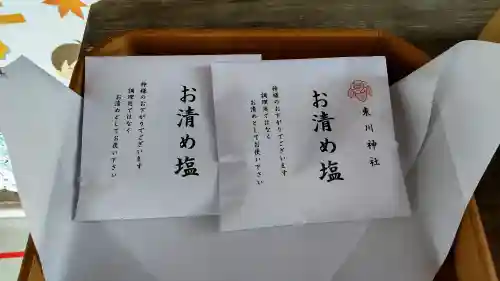 東川神社
お清め塩
神様のおさがりでございます
調理用ではなく
お清めとしてお使い下さい
お清め塩
神様のおさがりでございます
調理用ではなく
お清めとしてお使い下さい